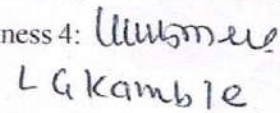 ness 4:
L G Kamble